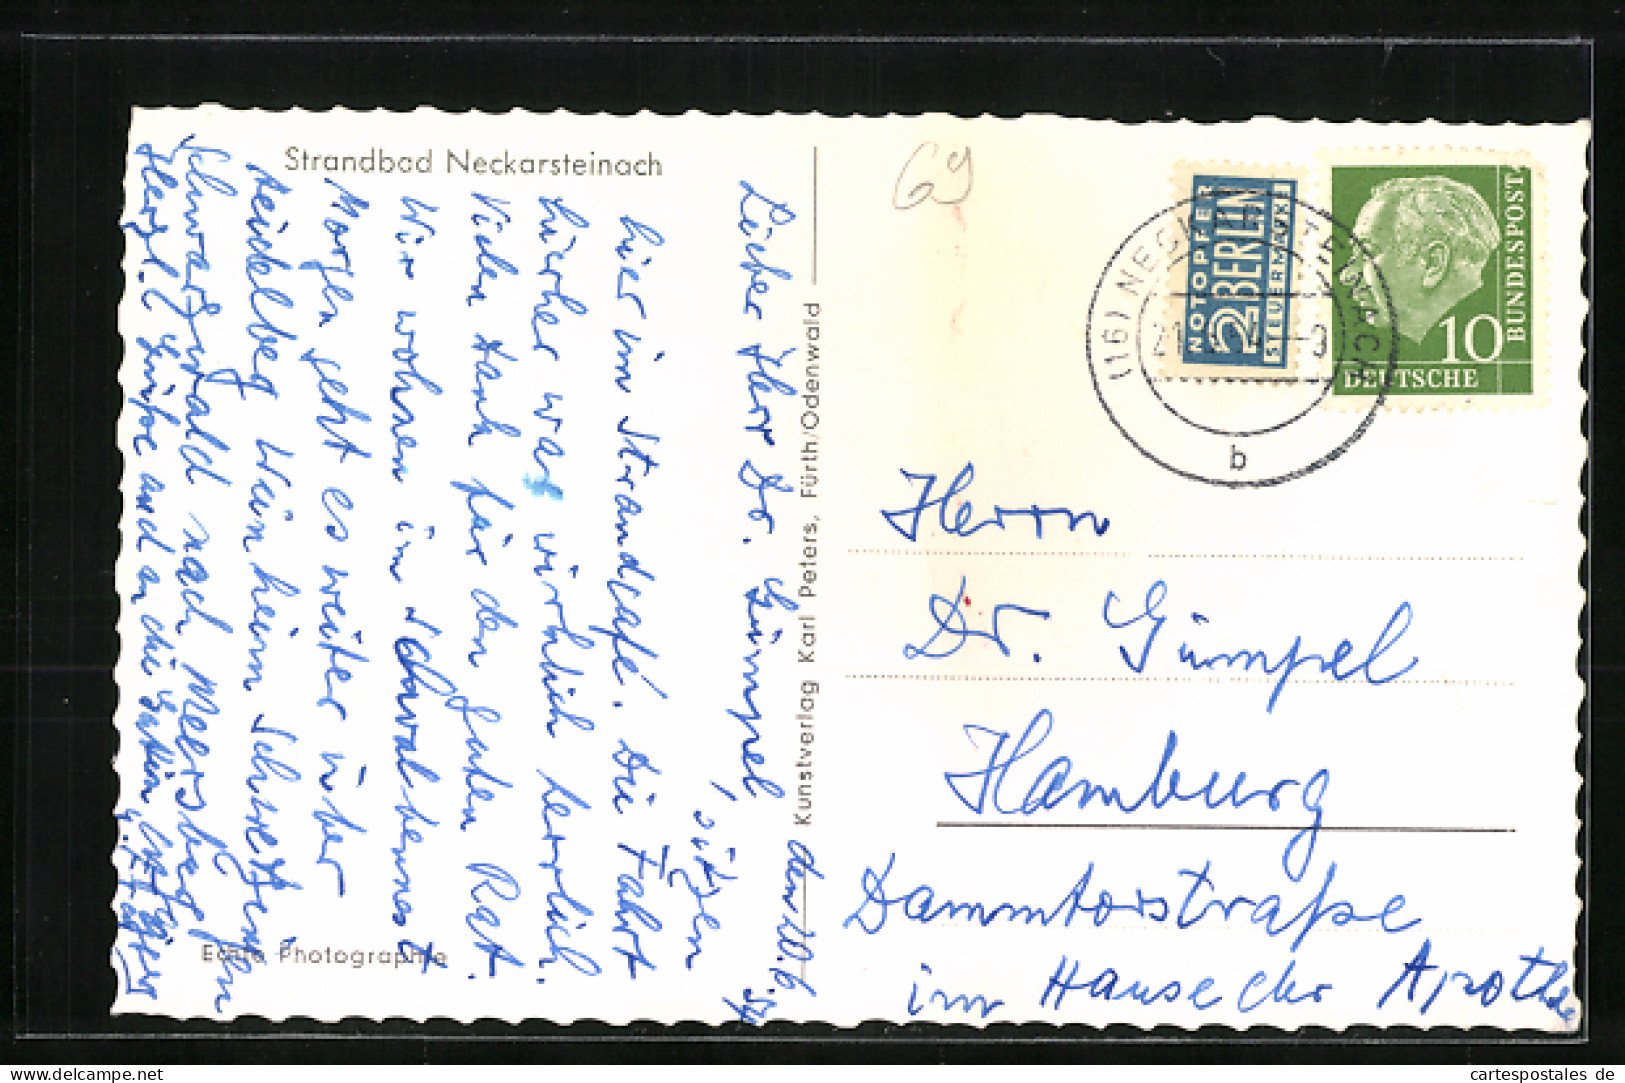 Strandbad Neckarsteinach
den 20.6.54
Lieber Herr Dr. Gümpel,
sitzen
hier im Strandcafé. Die Fahrt
hierher war wirklich herrlich.
Vielen Dank für den guten Rat.
Wir wohnen im Schwalbennest
Morgen geht es weiter über
Heidelberg Weinheim Schwetzingen
Schwarzwald nach Meersburg
Herzl. Grüße auch an die Gattin
Echte Photographie
Kunstverlag Karl Peters, Fürth/Odenwald
69
NOTOPFER
2 BERLIN
STEUERMARKE
10
DEUTSCHE
BUNDESPOST
(16) NECKARSTEINACH
b
Herrn
Dr. Gümpel
Hamburg
Dammtorstraße
im Hause der Apotheke
cartespostales.de